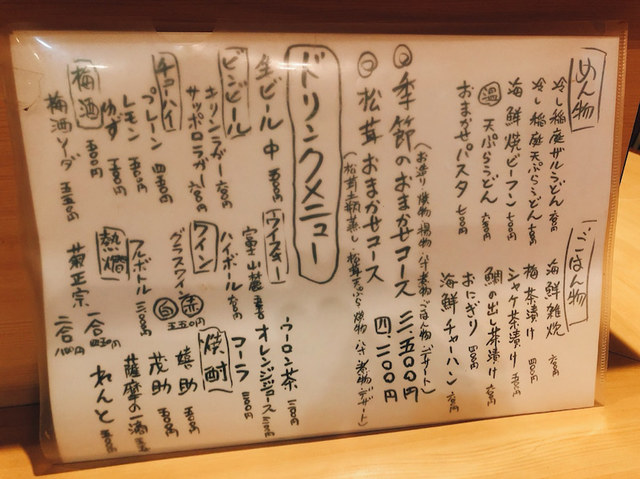 めん物
冷し稲庭ザルうどん 六〇〇円
冷し稲庭天ぷらうどん 七〇〇円
海鮮焼ビーフン 七〇〇円
温 天ぷらうどん 六五〇円
おまかせパスタ 七〇〇円
ごはん物
海鮮雑炊 六〇〇円
梅茶漬け 四〇〇円
シャケ茶漬け 五〇〇円
鯛の出し茶漬け 六五〇円
おにぎり 四〇〇円
海鮮チャーハン 六五〇円
季節のおまかせコース 三、五〇〇円
(お造り 焼物・揚物・八寸 煮物・ごはん物 デザート)
松茸おまかせコース 四二〇〇円
(松茸土瓶蒸し・松茸天ぷら 焼物 八寸 煮物 デザート)
ドリンクメニュー
生ビール 中 五〇〇円
ビンビール
キリンラガー 六〇〇円
サッポロラガー 六〇〇円
チューハイ
プレーン 四五〇円
レモン 五〇〇円
ゆず 五〇〇円
梅酒 五〇〇円
梅酒ソーダ 五五〇円
ウイスキー
富士山麓 五〇〇円
ハイボール 六〇〇円
ワイン
グラスワイン 赤 白 五五〇円
フルボトル 三、〇〇〇円
熱燗
菊正宗 一合 四五〇円
二合 八〇〇円
ウーロン茶 三〇〇円
オレンジジュース 三〇〇円
コーラ 三〇〇円
焼酎
嬉助 五〇〇円
茂助 五〇〇円
薩摩の一滴
れんと 五〇〇円